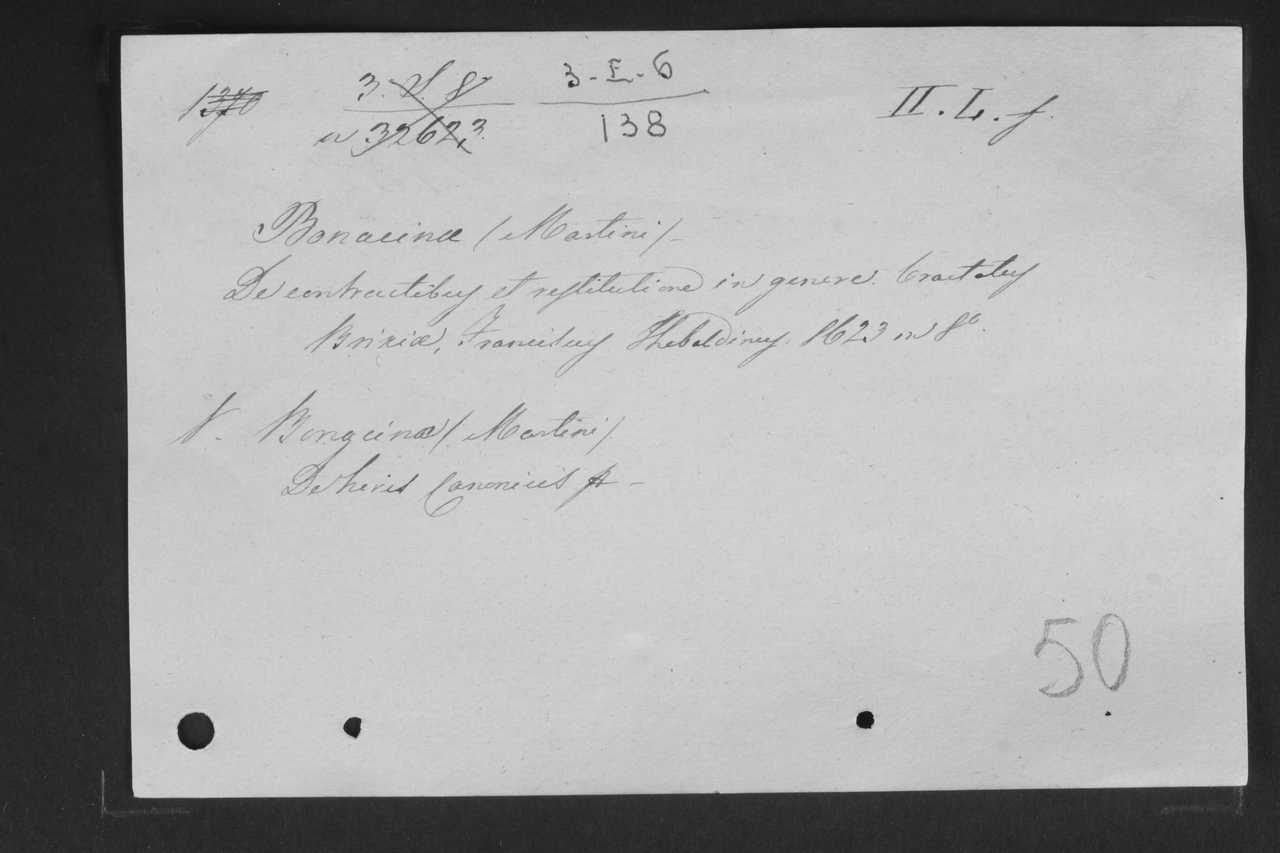 3. L. 8 3-E-6 II. L. f.
a 32623. 138
Bonacinæ (Martini)-
De contractibus et restitutione in genere. tractatus
Brixiæ, Franciscus Thebaldinus. 1623 in 8º.
V. Bonacinæ (Martini)
De horis Canonicis &-
50